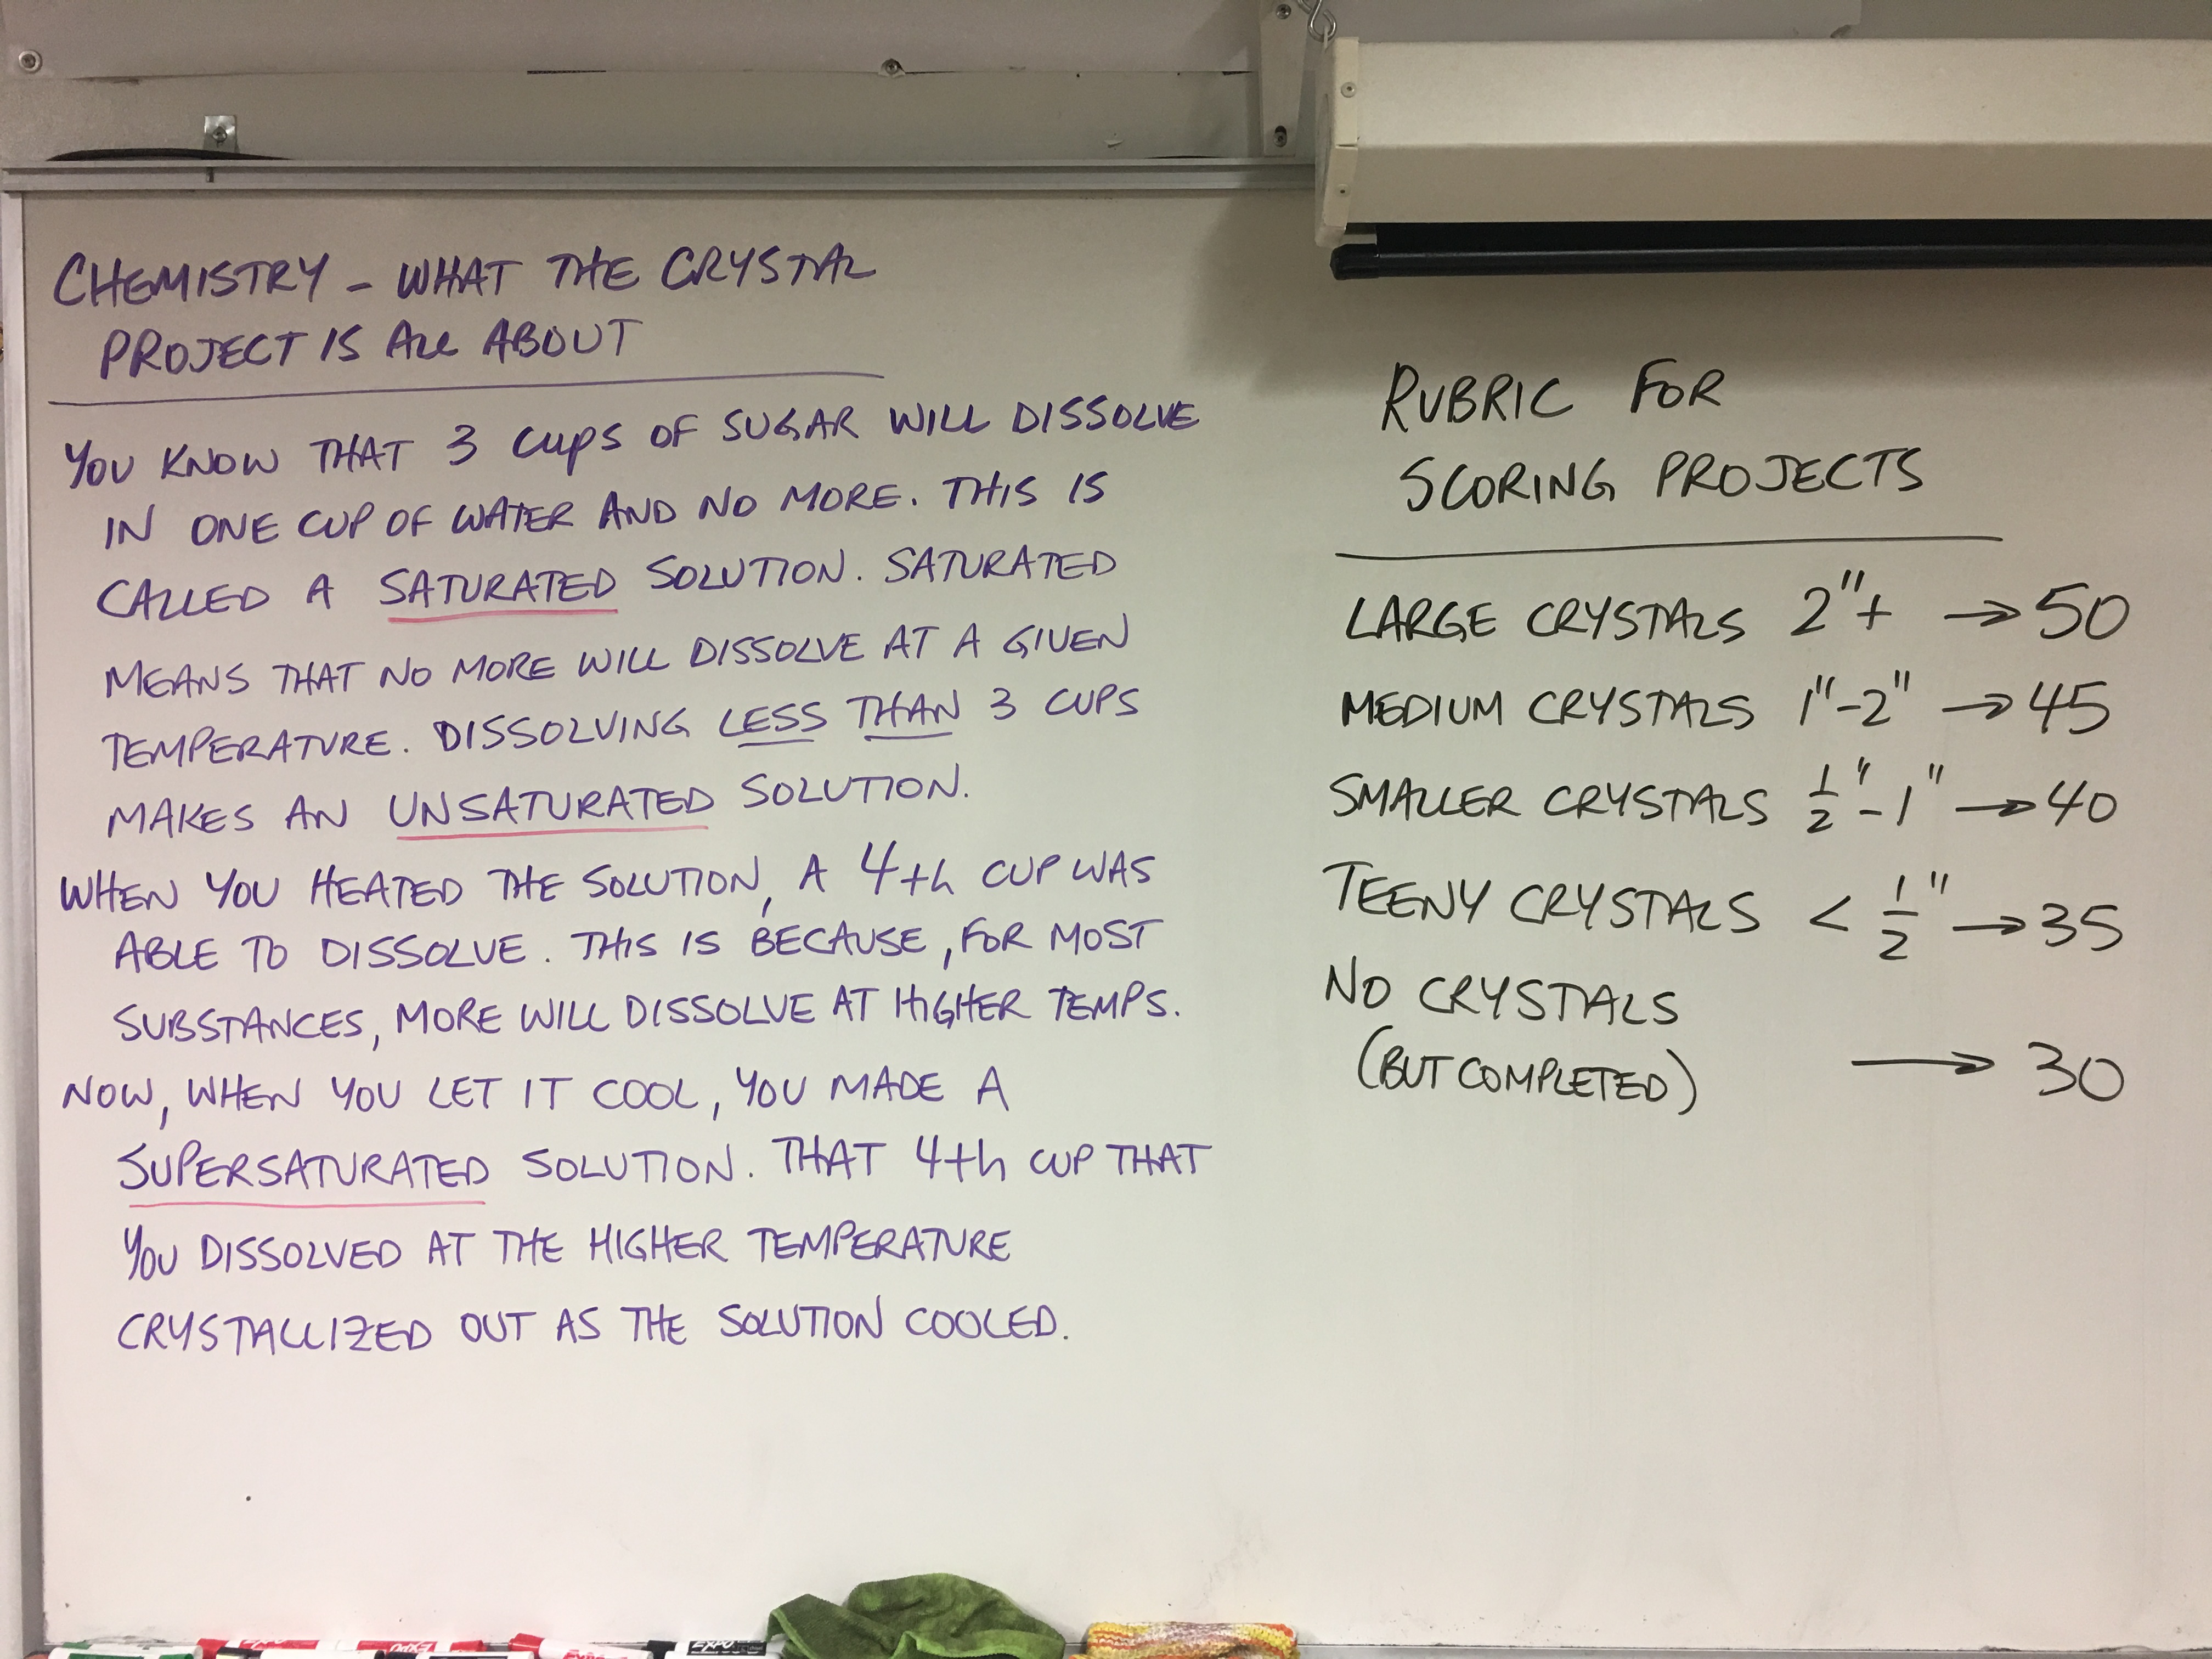 CHEMISTRY - WHAT THE CRYSTAL
PROJECT IS ALL ABOUT
YOU KNOW THAT 3 CUPS OF SUGAR WILL DISSOLVE
IN ONE CUP OF WATER AND NO MORE. THIS IS
CALLED A SATURATED SOLUTION. SATURATED
MEANS THAT NO MORE WILL DISSOLVE AT A GIVEN
TEMPERATURE. DISSOLVING LESS THAN 3 CUPS
MAKES AN UNSATURATED SOLUTION.
WHEN YOU HEATED THE SOLUTION, A 4th CUP WAS
ABLE TO DISSOLVE. THIS IS BECAUSE, FOR MOST
SUBSTANCES, MORE WILL DISSOLVE AT HIGHER TEMPS.
NOW, WHEN YOU LET IT COOL, YOU MADE A
SUPERSATURATED SOLUTION. THAT 4th CUP THAT
YOU DISSOLVED AT THE HIGHER TEMPERATURE
CRYSTALLIZED OUT AS THE SOLUTION COOLED.
RUBRIC FOR
SCORING PROJECTS
LARGE CRYSTALS 2"+ → 50
MEDIUM CRYSTALS 1"-2" → 45
SMALLER CRYSTALS 1/2"-1" → 40
TEENY CRYSTALS < 1/2" → 35
NO CRYSTALS
(BUT COMPLETED) → 30
EXPO